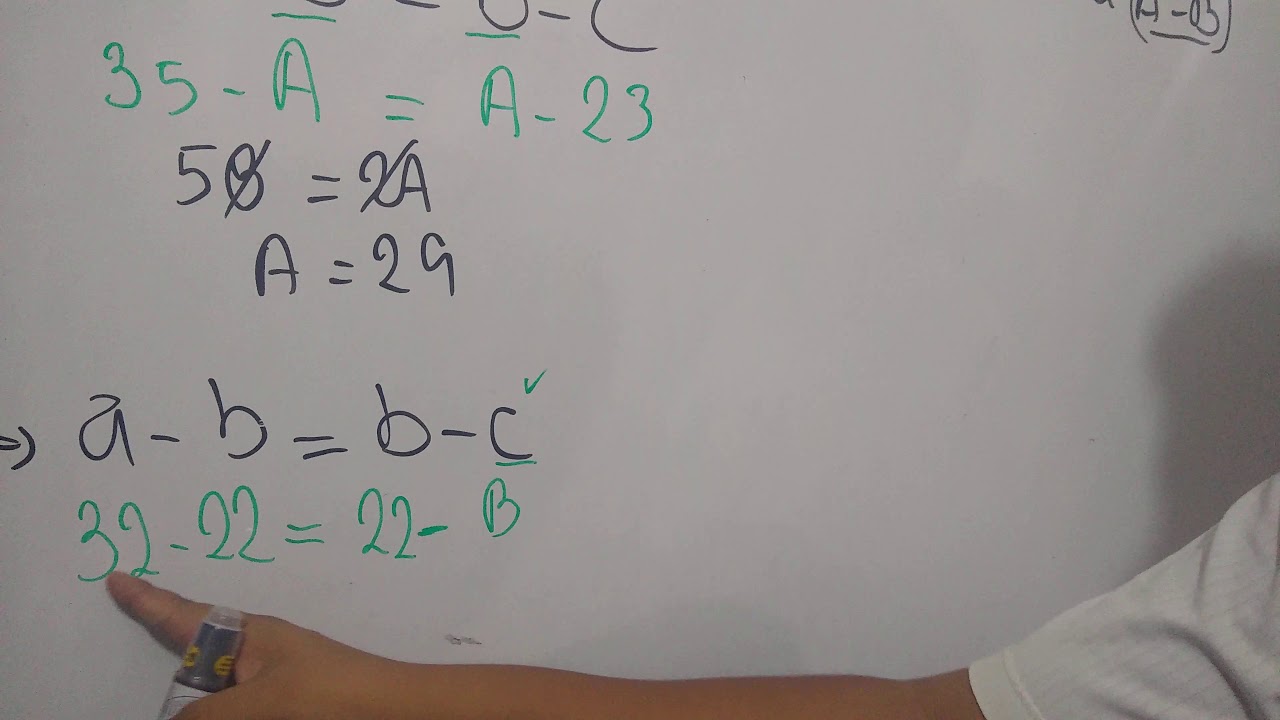 - C
(A-B)
35 - A = A - 23
58 = 2A
A = 29
⇒ a - b = b - c ✓
32 - 22 = 22 - B